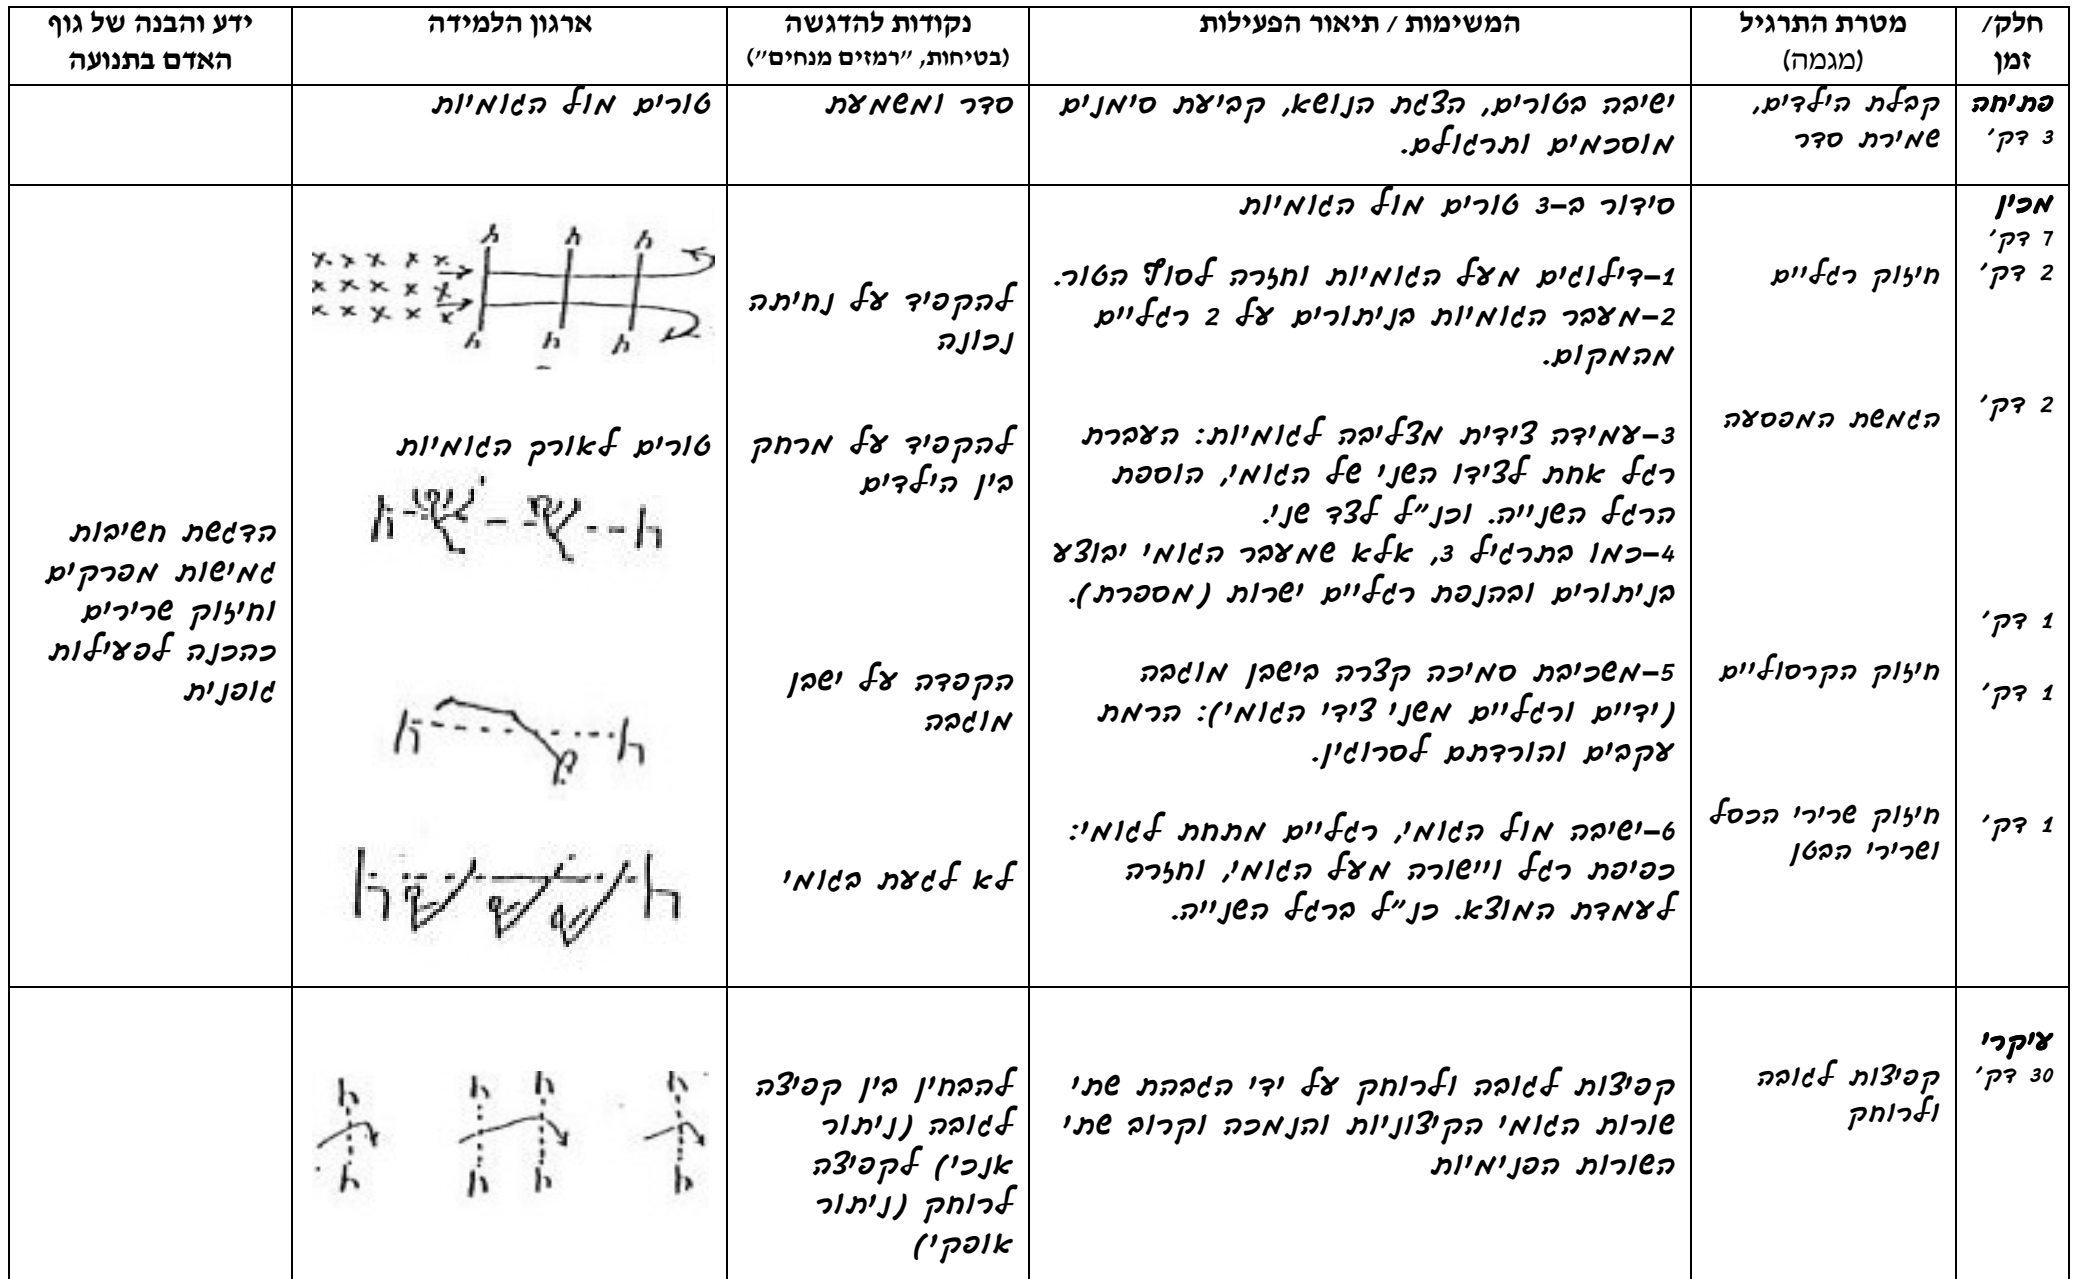 חלק/
זמן
מטרת התרגיל
(מגמה)
המשימות / תיאור הפעילות
נקודות להדגשה
(בטיחות, "רמזים מנחים")
ארגון הלמידה
ידע והבנה של גוף
האדם בתנועה
פתיחה
3 דק'
קבלת הילדים,
שמירת סדר
ישיבה בטורים, הצגת הנושא, קביעת סימנים
מוסכמים ותרגולם.
סדר ומשמעת
טורים מול הגומיות
מכין
7 דק'
2 דק'
2 דק'
1 דק'
1 דק'
1 דק'
חיזוק רגליים
הגמשת המפסעה
חיזוק הקרסוליים
חיזוק שרירי הכסל
ושרירי הבטן
סידור ב-3 טורים מול הגומיות
1-דילוגים מעל הגומיות וחזרה לסוף הטור.
2-מעבר הגומיות בניתורים על 2 רגליים
מהמקום.
3-עמידה צידית מצליבה לגומיות: העברת
רגל אחת לצידו השני של הגומי, הוספת
הרגל השנייה. וכנ"ל לצד שני.
4-כמו בתרגיל 3, אלא שמעבר הגומי יבוצע
בניתורים ובהנפת רגליים ישרות (מספרת).
5-משכיבת סמיכה קצרה בישבן מוגבה
(ידיים ורגליים משני צידי הגומי): הרמת
עקבים והורדתם לסרוגין.
6-ישיבה מול הגומי, רגליים מתחת לגומי:
כפיפת רגל ויישורה מעל הגומי, וחזרה
לעמדת המוצא. כנ"ל ברגל השנייה.
להקפיד על נחיתה
נכונה
להקפיד על מרחק
בין הילדים
הקפדה על ישבן
מוגבה
לא לגעת בגומי
טורים לאורך הגומיות
הדגשת חשיבות
גמישות מפרקים
וחיזוק שרירים
כהכנה לפעילות
גופנית
עיקרי
30 דק'
קפיצות לגובה
ולרוחק
קפיצות לגובה ולרוחק על ידי הגבהת שתי
שורות הגומי הקיצוניות והנמכה וקרוב שתי
השורות הפנימיות
להבחין בין קפיצה
לגובה (ניתור
אנכי) לקפיצה
לרוחק (ניתור
אופקי)